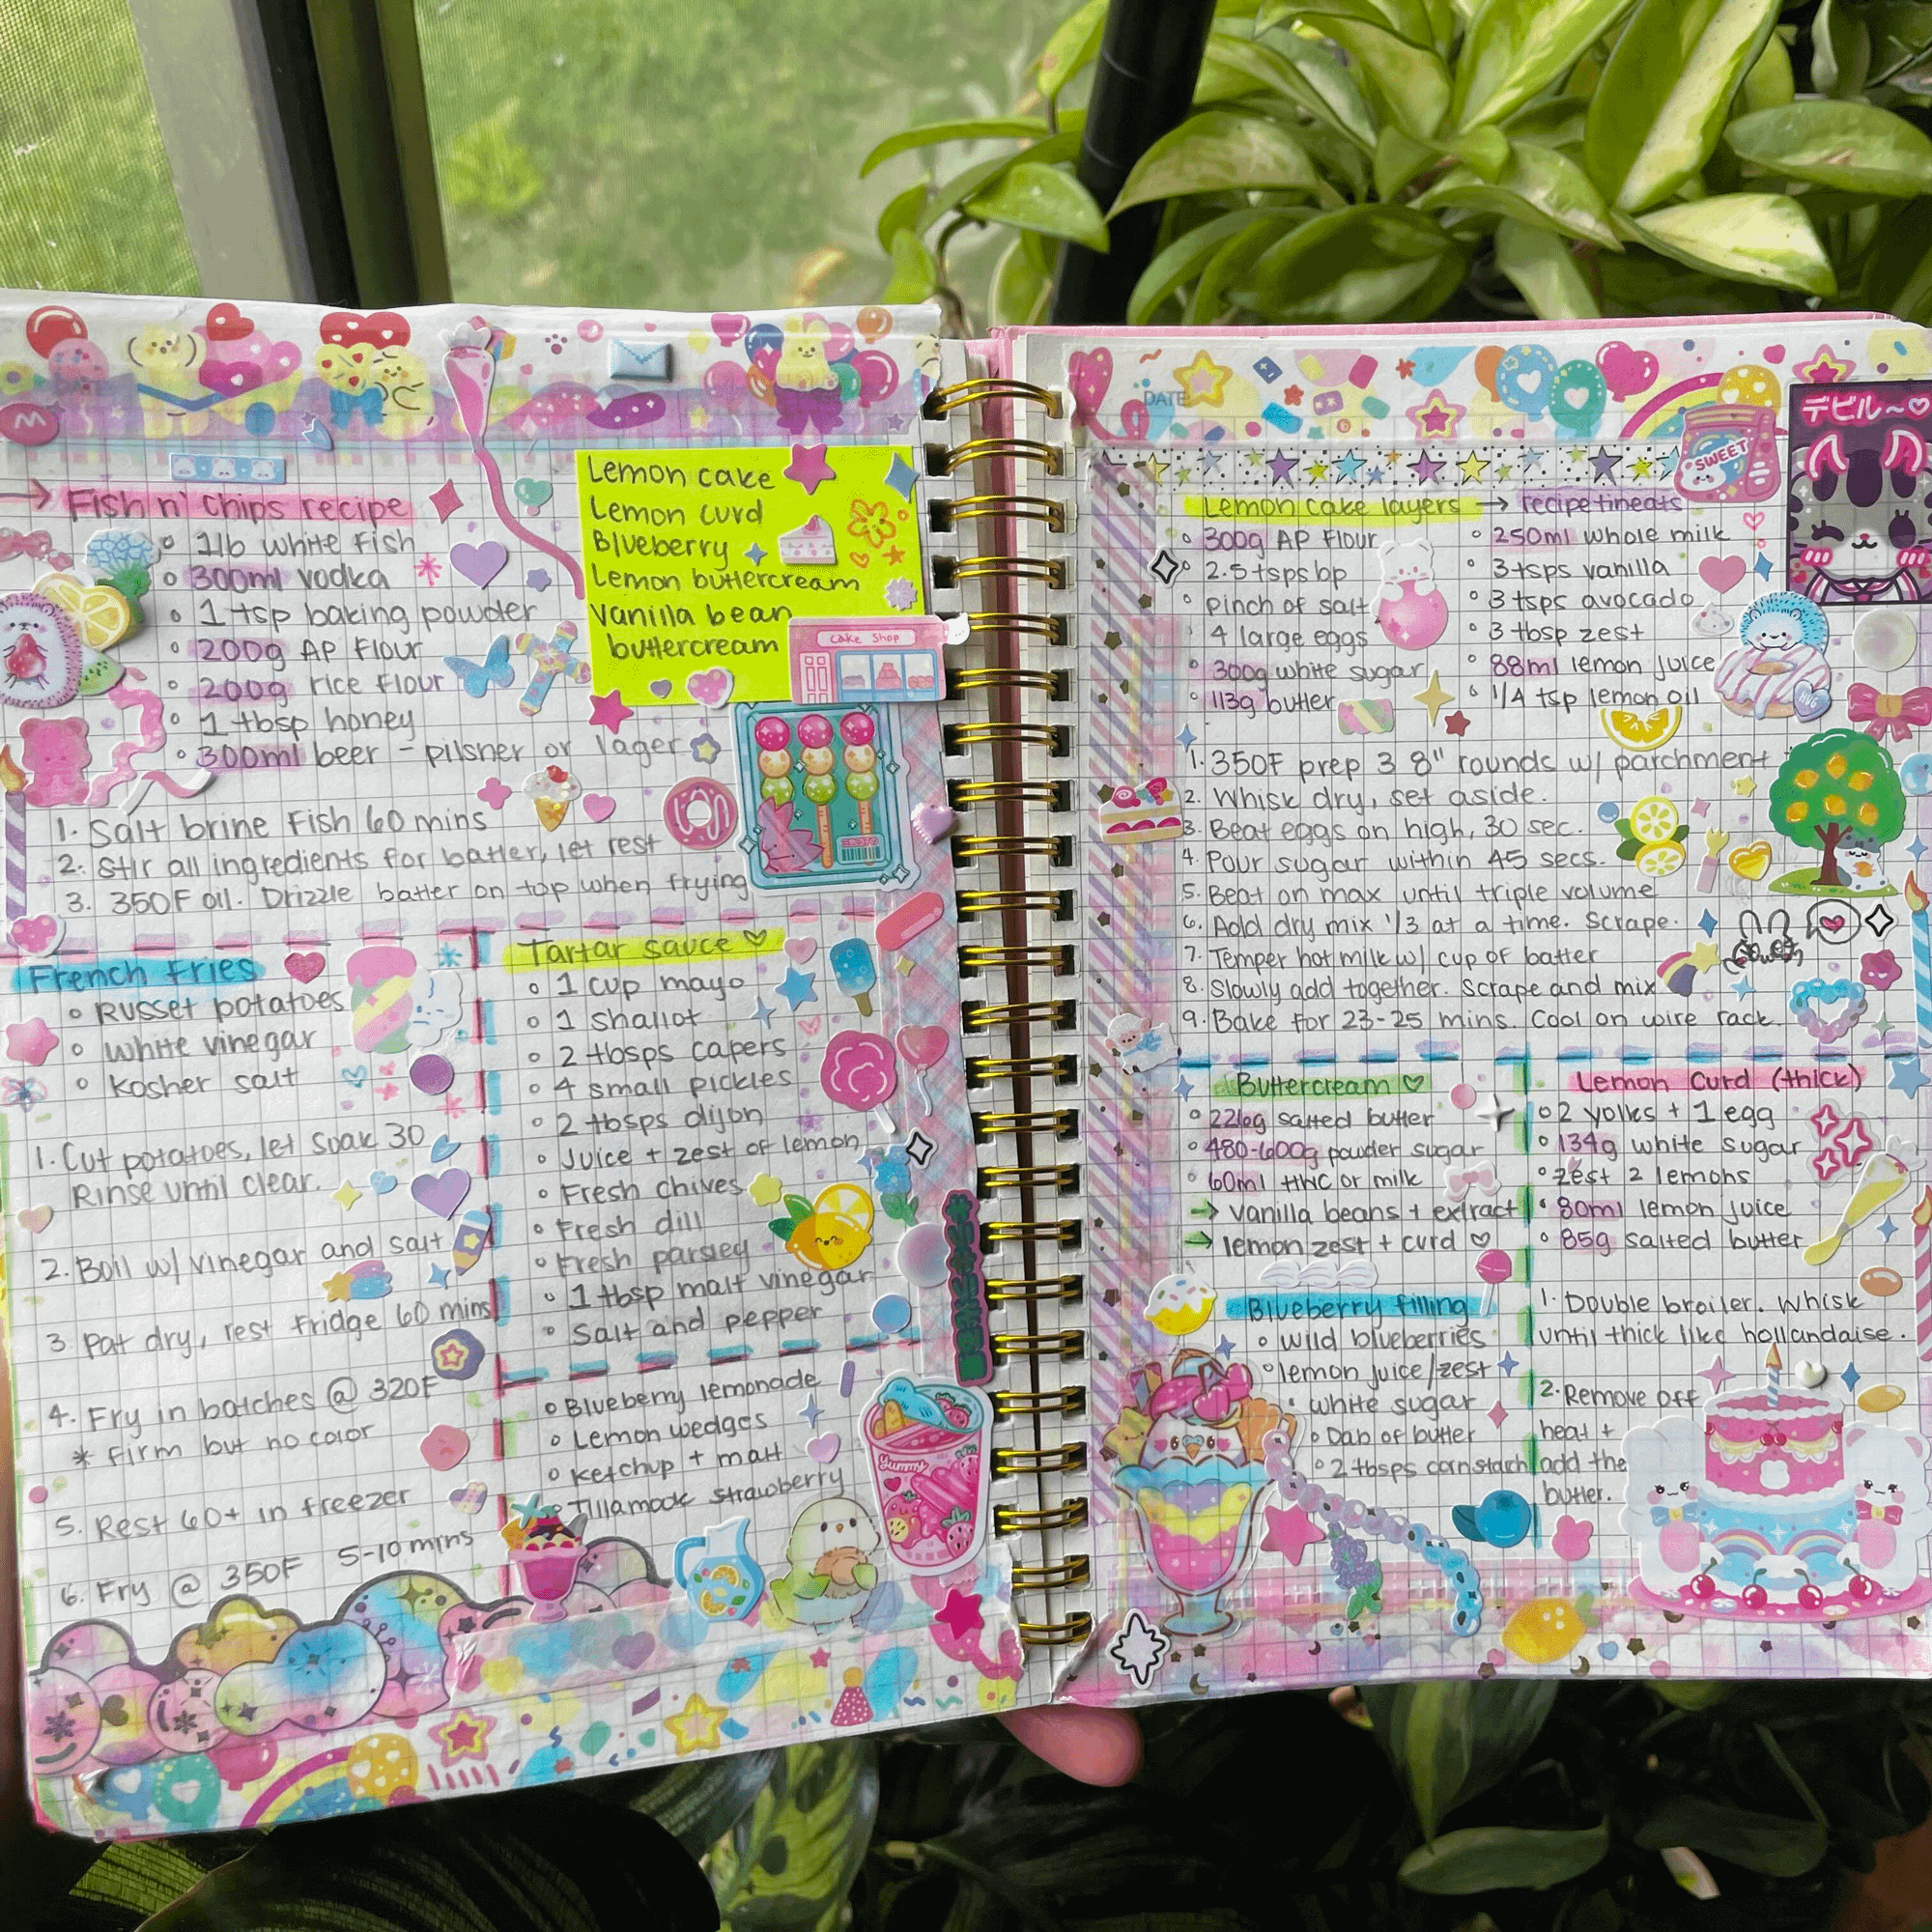 → Fish n' Chips recipe
○ 1lb white fish
○ 300ml vodka
○ 1 tsp baking powder
○ 200g AP flour
○ 200g rice flour
○ 1 tbsp honey
○ 300ml beer - pilsner or lager
1. Salt brine fish 60 mins
2. Stir all ingredients for batter, let rest
3. 350F oil. Drizzle batter on top when frying
Lemon cake
Lemon curd
Blueberry
Lemon buttercream
Vanilla bean
buttercream
Cake Shop
French fries
○ Russet potatoes
○ White vinegar
○ Kosher salt
1. Cut potatoes, let soak 30
Rinse until clear.
2. Boil w/ vinegar and salt
3. Pat dry, rest fridge 60 mins
4. Fry in batches @ 320F
* firm but no color
5. Rest 60+ in freezer
6. Fry @ 350F 5-10 mins
Tartar sauce ♡
○ 1 cup mayo
○ 1 shallot
○ 2 tbsps capers
○ 4 small pickles
○ 2 tbsps dijon
○ Juice + zest of lemon
○ Fresh chives
○ Fresh dill
○ Fresh parsley
○ 1 tbsp malt vinegar
○ Salt and pepper
○ Blueberry lemonade
○ Lemon wedges
○ Ketchup + malt
○ Tillamook strawberry
Yummy
DATE
SWEET
デビル~♡
Lemon cake layers → recipetineats
○ 300g AP flour
○ 2.5 tsps bp
○ pinch of salt
4 large eggs
○ 300g white sugar
○ 113g butter
○ 250ml whole milk
○ 3 tsps vanilla
○ 3 tsps avocado
○ 3 tbsp zest
○ 88ml lemon juice
○ 1/4 tsp lemon oil
HUG
1. 350F prep 3 8" rounds w/ parchment
2. Whisk dry, set aside.
3. Beat eggs on high, 30 sec.
4. Pour sugar within 45 secs.
5. Beat on max until triple volume
6. Add dry mix 1/3 at a time. Scrape.
7. Temper hot milk w/ cup of batter
8. Slowly add together. Scrape and mix
9. Bake for 23-25 mins. Cool on wire rack.
Buttercream ♡
○ 226g salted butter
○ 480-600g powder sugar
○ 60ml tHC or milk
→ vanilla beans + extract
→ lemon zest + curd ♡
Blueberry filling
○ wild blueberries
○ lemon juice/zest
○ white sugar
○ Dab of butter
○ 2 tbsps cornstach
Lemon Curd (thick)
○ 2 yolks + 1 egg
○ 134g white sugar
○ zest 2 lemons
○ 80ml lemon juice
○ 85g salted butter
1. Double broiler. Whisk
until thick like hollandaise.
2. Remove off
heat +
add the
butter.